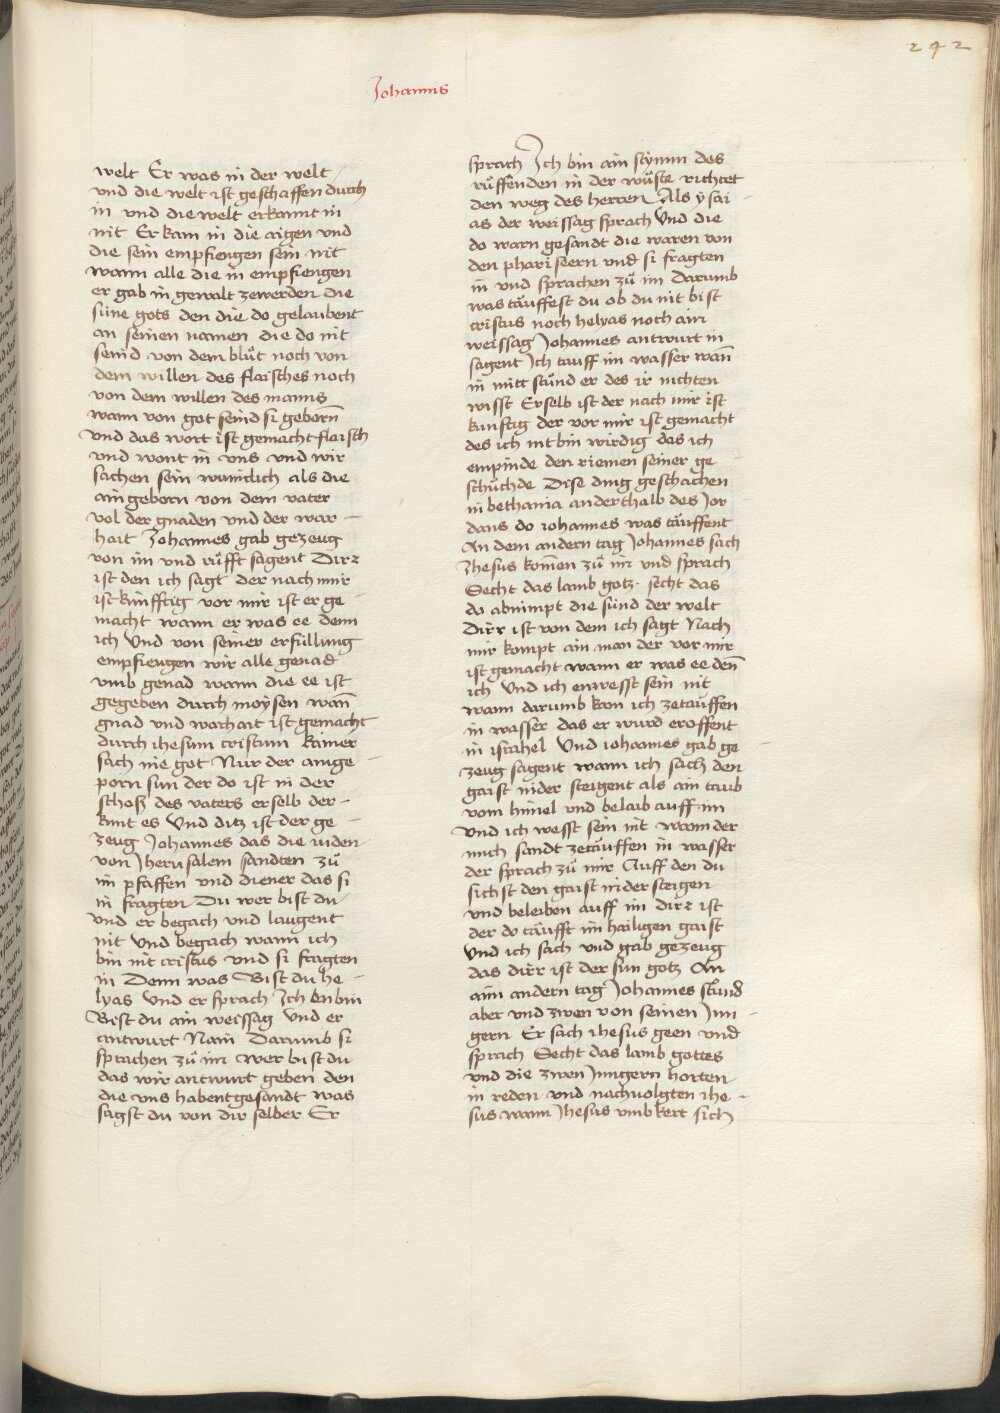 242
Johannis
welt Er was in der welt
vnd die welt ist geschaffen durch
in vnd die welt erkannt in
nit Er kam in die aigen vnd
die sein empfiengen sein nit
wann alle die in empfiengen
er gab in gewalt zewerden die
süne gots den die do gelaubent
an seinen namen die do nit
seind von dem blůt noch von
dem willen des flaisches noch
von dem willen des manns
wann von got seind si geborn̄
vnd das wort ist gemacht flaisch
vnd wont in vns vnd wir
sachen sein wunnlich als die
aingeborn von dem vater
vol der gnaden vnd der war
hait Johannes gab gezeug
von im vnd růfft sagent Dirr
ist den ich sagt der nach mir
ist künfftig vor mir ist er ge
macht wann er was ee denn
ich Vnd von seiner erfüllung
empfiengen wir alle genad
vmb genad wann die ee ist
gegeben durch moÿsen wan̄
gnad vnd warhait ist gemacht
durch ihesum cristum kainer
sach nie got Nur der ainge
porn sun der do ist in der
schoß des vaters er selb der
kunt es Vnd ditz ist der ge
zeug Johannes das die iuden
von Jherusalem sandten zů
im pfaffen vnd diener das si
in fragten Du wer bist du
vnd er begach vnd laugent
nit Vnd begach wann ich
bin nit cristus vnd si fragten
in Denn was Bist du he
lyas Vnd er sprach Ich enbin
Bist du ain weissag Vnd er
antwurt Nain Darumb si
sprachen zů im wer bist du
das wir antwurt geben den
die vns habent gesandt was
sagst du von dir selber Er
sprach Ich bin ain stymm des
růffenden in der wůste richtet
den weg des herren Als ÿsai
as der weissag sprach Vnd die
do warn gesandt die waren von
den phariseern vnd si fragten
in vnd sprachen zů im Darumb
was täuffest du ob du nit bist
cristus noch helyas noch ain
weissag Johannes antwurt in
sagent Ich tauff im wasser wan̄
in mitt stůnd er des ir nichten
wisst Er selb ist der nach mir ist
künftig der vor mir ist gemacht
des ich nit bin wirdig das ich
empinde den riemen seiner ge
schůchde Dise ding geschachen
in bethania anderthalb des Jor
dans do iohannes was täuffent
An dem andern tag Johannes sach
Jhesus komen zů im vnd sprach
Secht das lamb gotz secht das
do abnimpt die sünd der welt
Dirr ist von dem ich sagt Nach
mir kompt ain man der vor mir
ist gemacht wann er was ee den̄
ich Vnd ich enwesst sein nit
wann darumb kom ich zetäuffen
in wasser das er wurd eroffent
in israhel Vnd iohannes gab ge
zeug sagent wann ich sach den
gaist nider steigent als ain taub
vom himel vnd belaib auff im
vnd ich wesst sein nit wann der
mich sandt zetäuffen in wasser
der sprach zů mir Auff den du
sichst den gaist nider steigen
vnd beleiben auff im dirr ist
der do täufft im hailigen gaist
Vnd ich sach vnd gab gezeug
das dirr ist der sun gotz An
aim andern tag Johannes stůnd
aber vnd zwen von seinen Jun
gern Er sach ihesus geen vnd
sprach Secht das lamb gottes
vnd die zwen Jungern horten
in reden vnd nachuolgten ihe
sus wann Jhesus vmbkert sich